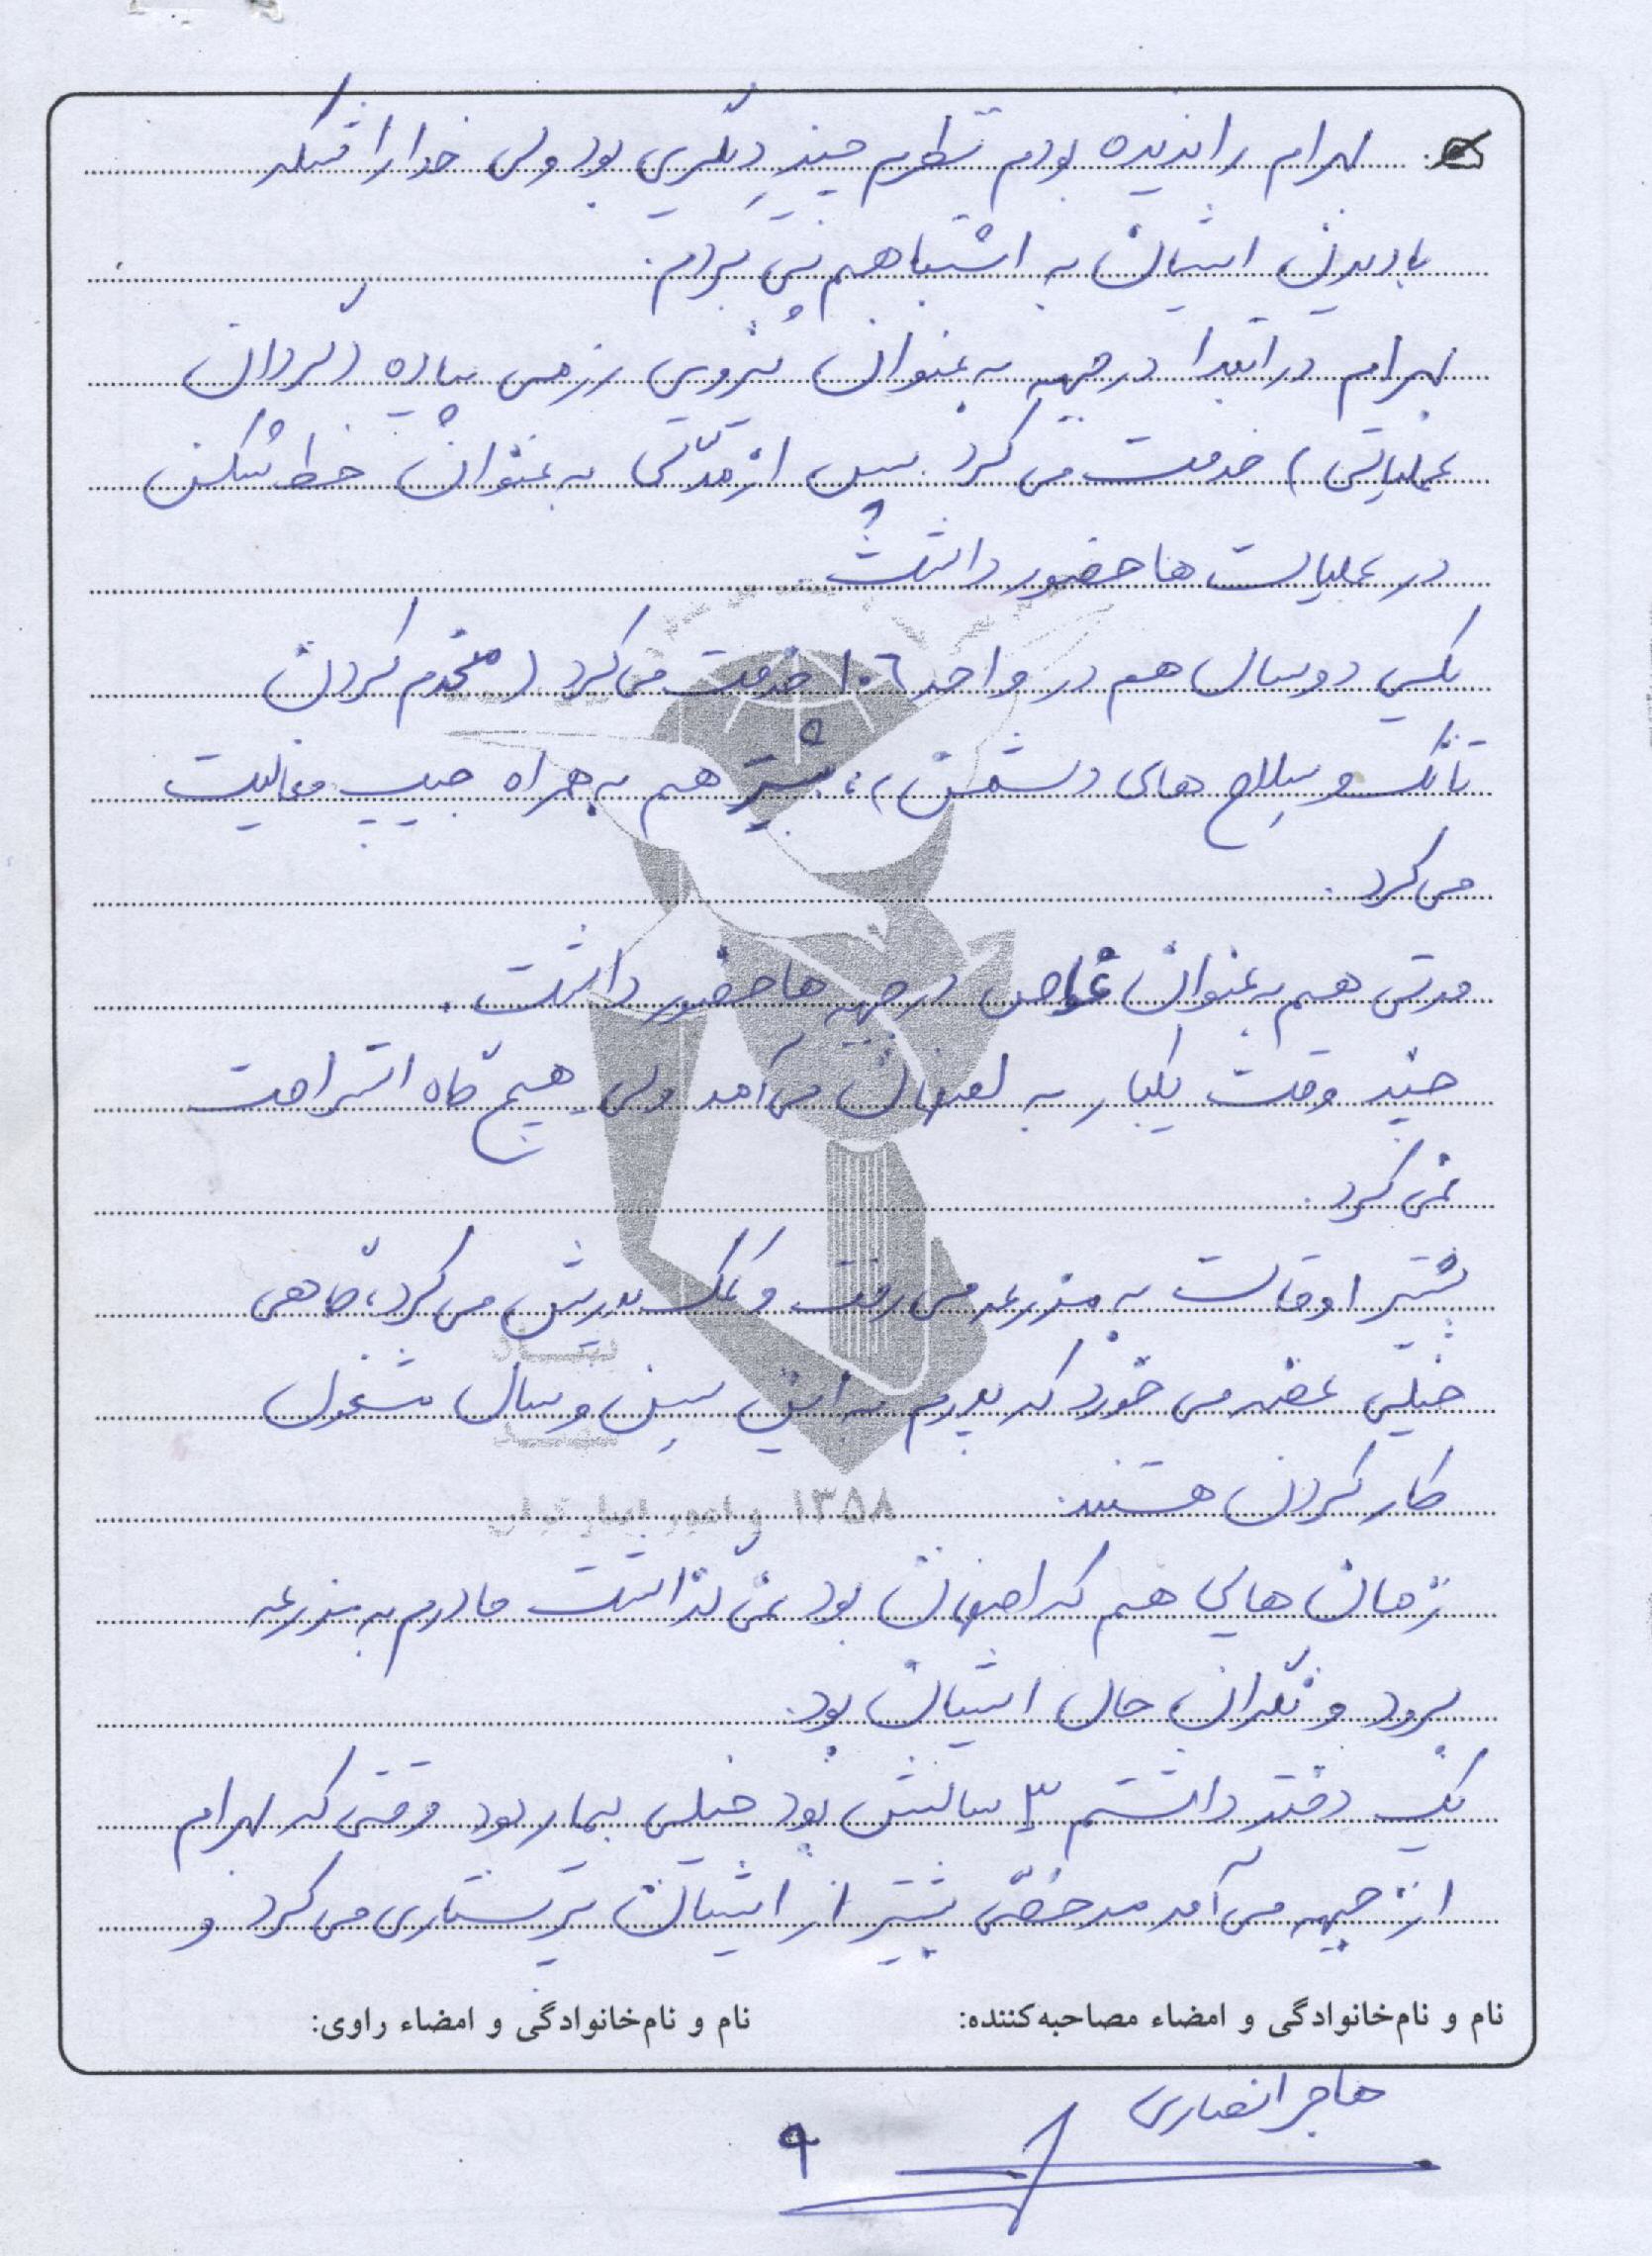 بهرام را ندیده بودم نظرم چیز دیگری بود ولی خدا را شکر
با دیدن ایشان به اشتباهم پی بردم.
بهرام در ابتدا در جبهه به عنوان نیروی رزمی پیاده (گردان
عملیاتی) خدمت می کرد. پس از مدّتی به عنوان خط شکن
در عملیات ها حضور داشت.
یکی دو سال هم در واحد ١٠٦ خدمت می کرد (منحدم کردن
تانک و سلاح های دشمن)، بیشتر هم به همراه حبیب فعالیت
می کرد.
مدتی هم به عنوان غواص در جبهه ها حضور داشت.
چند وقت یکبار به اصفهان می آمد ولی هیچ گاه استراحت
نمی کرد.
بیشتر اوقات به مزرعه می رفت و کمک پدرش می کرد، گاهی
خیلی غصه می خورد که پدرم به این سن و سال مشغول
کار کردن هستند.
زمان هایی هم که اصفهان بود نمی گذاشت مادرم به مزرعه
برود و نگران حال ایشان بود.
یک دختر داشتم ۳ سالش بود خیلی بیمار بود وقتی که بهرام
از جبهه می آمد مرخصّی بیشتر از ایشان پرستاری می کرد و
نام و نام‌خانوادگی و امضاء مصاحبه‌کننده: نام و نام‌خانوادگی و امضاء راوی:
هاجر انصاری
۹
بنیاد
شهید
و امور ایثارگران ۱۳۵۸